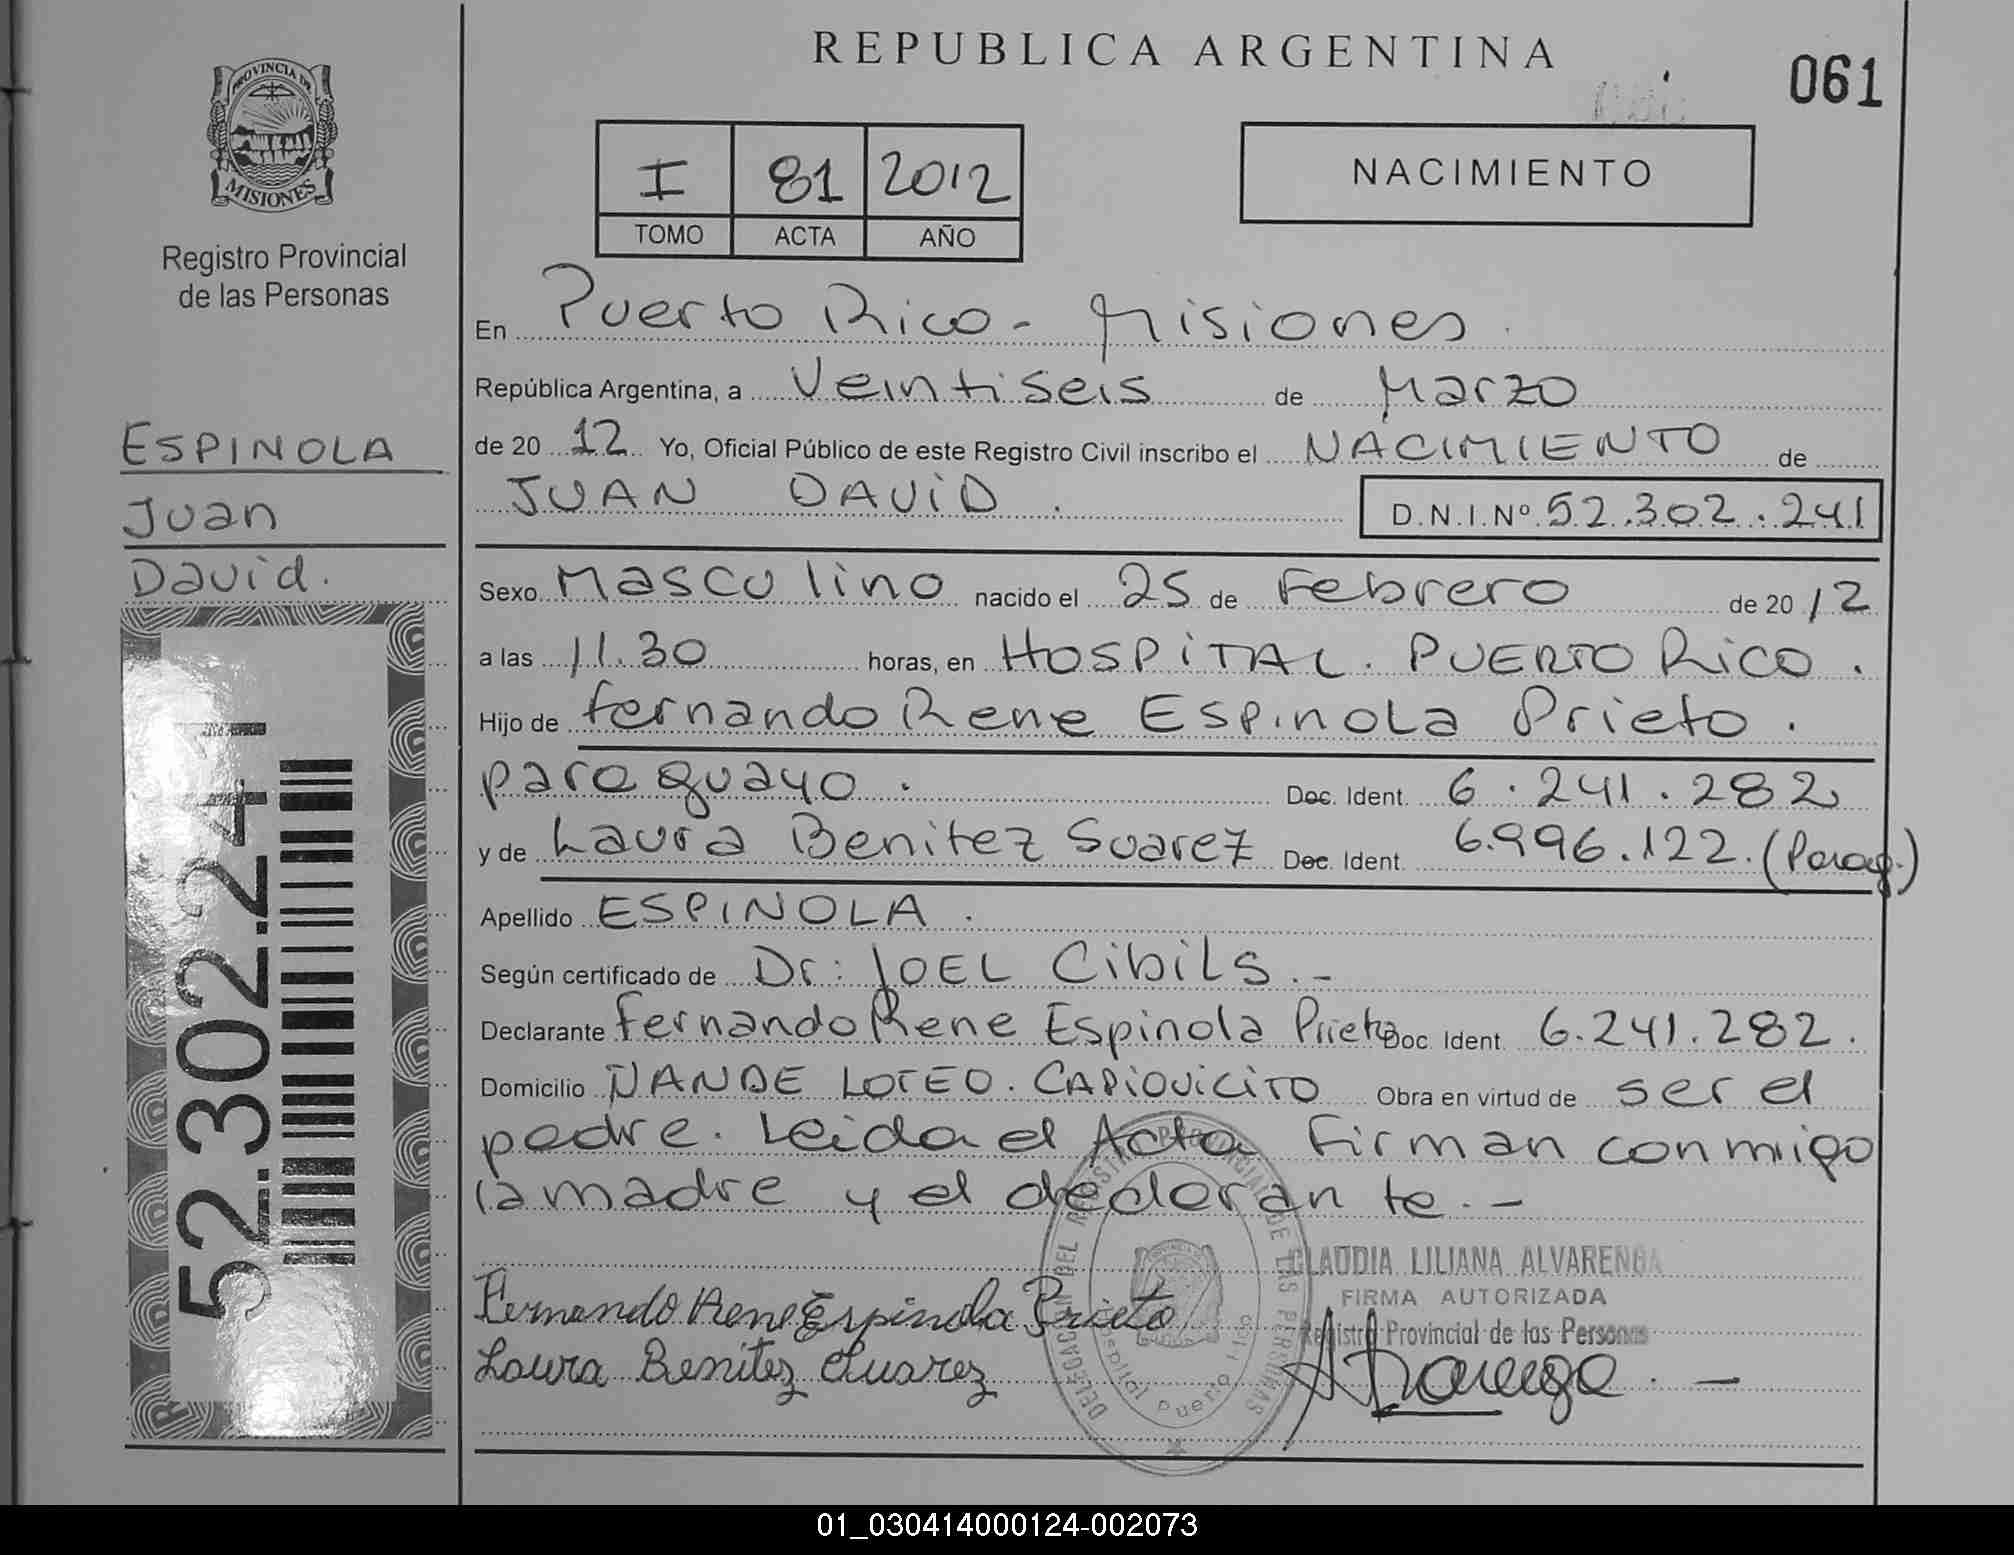 REPUBLICA ARGENTINA
061
PROVINCIA DE
MISIONES
Registro Provincial
de las Personas
I 81 2012
TOMO ACTA AÑO
NACIMIENTO
En Puerto Rico - Misiones.
República Argentina, a Veintiseis de Marzo
de 20 12 Yo, Oficial Público de este Registro Civil inscribo el NACIMIENTO de
JUAN DAViD. D.N.I.Nº 52.302.241
ESPINOLA
Juan
David.
52.302.241
Sexo Masculino nacido el 25 de Febrero de 20 12
a las 11.30 horas, en HOSPiTAL. PUERTO RiCO.
Hijo de Fernando Rene Espinola Prieto.
paraguayo. Doc. Ident. 6.241.282
y de Laura Benitez Suarez Doc. Ident. 6.996.122. (Parag.)
Apellido ESPINOLA.
Según certificado de Dr: JOEL CibiLS.-
Declarante Fernando Rene Espinola Prieto Doc. Ident. 6.241.282.
Domicilio ÑANDE LOTEO. CAPiOViCiTO Obra en virtud de ser el
padre. Leida el Acta Firman conmigo
la madre y el declarante.-
CLAUDIA LILIANA ALVARENGA
FIRMA AUTORIZADA
Registro Provincial de las Personas
Fernando Rene Espinola Prieto
Laura Benitez Suarez
Alvarenga.-
DELEGACION DEL REGISTRO PROVINCIAL DE LAS PERSONAS
Hospital Puerto Rico
01_030414000124-002073